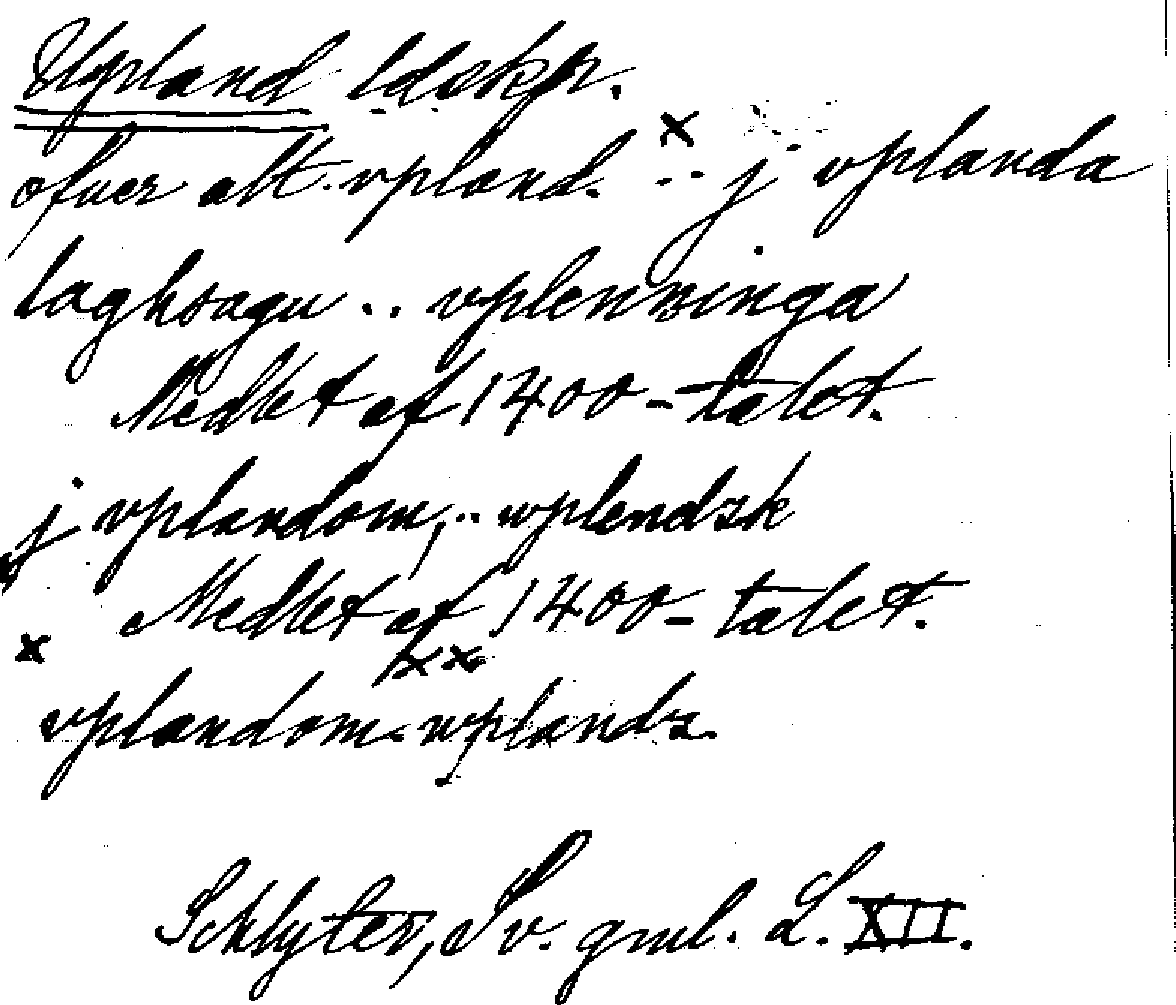 Uppland ldskp.
ofuer alt vpland. x .. j vplanda
laghsagu .. vplenninga
Medltt af 1400-talet.
j vplandom, .. wplendzk
Medltt af 1400-talet.
x xx
vplandom. wplandz.
Schlyter, Sv. gml. L. XII.